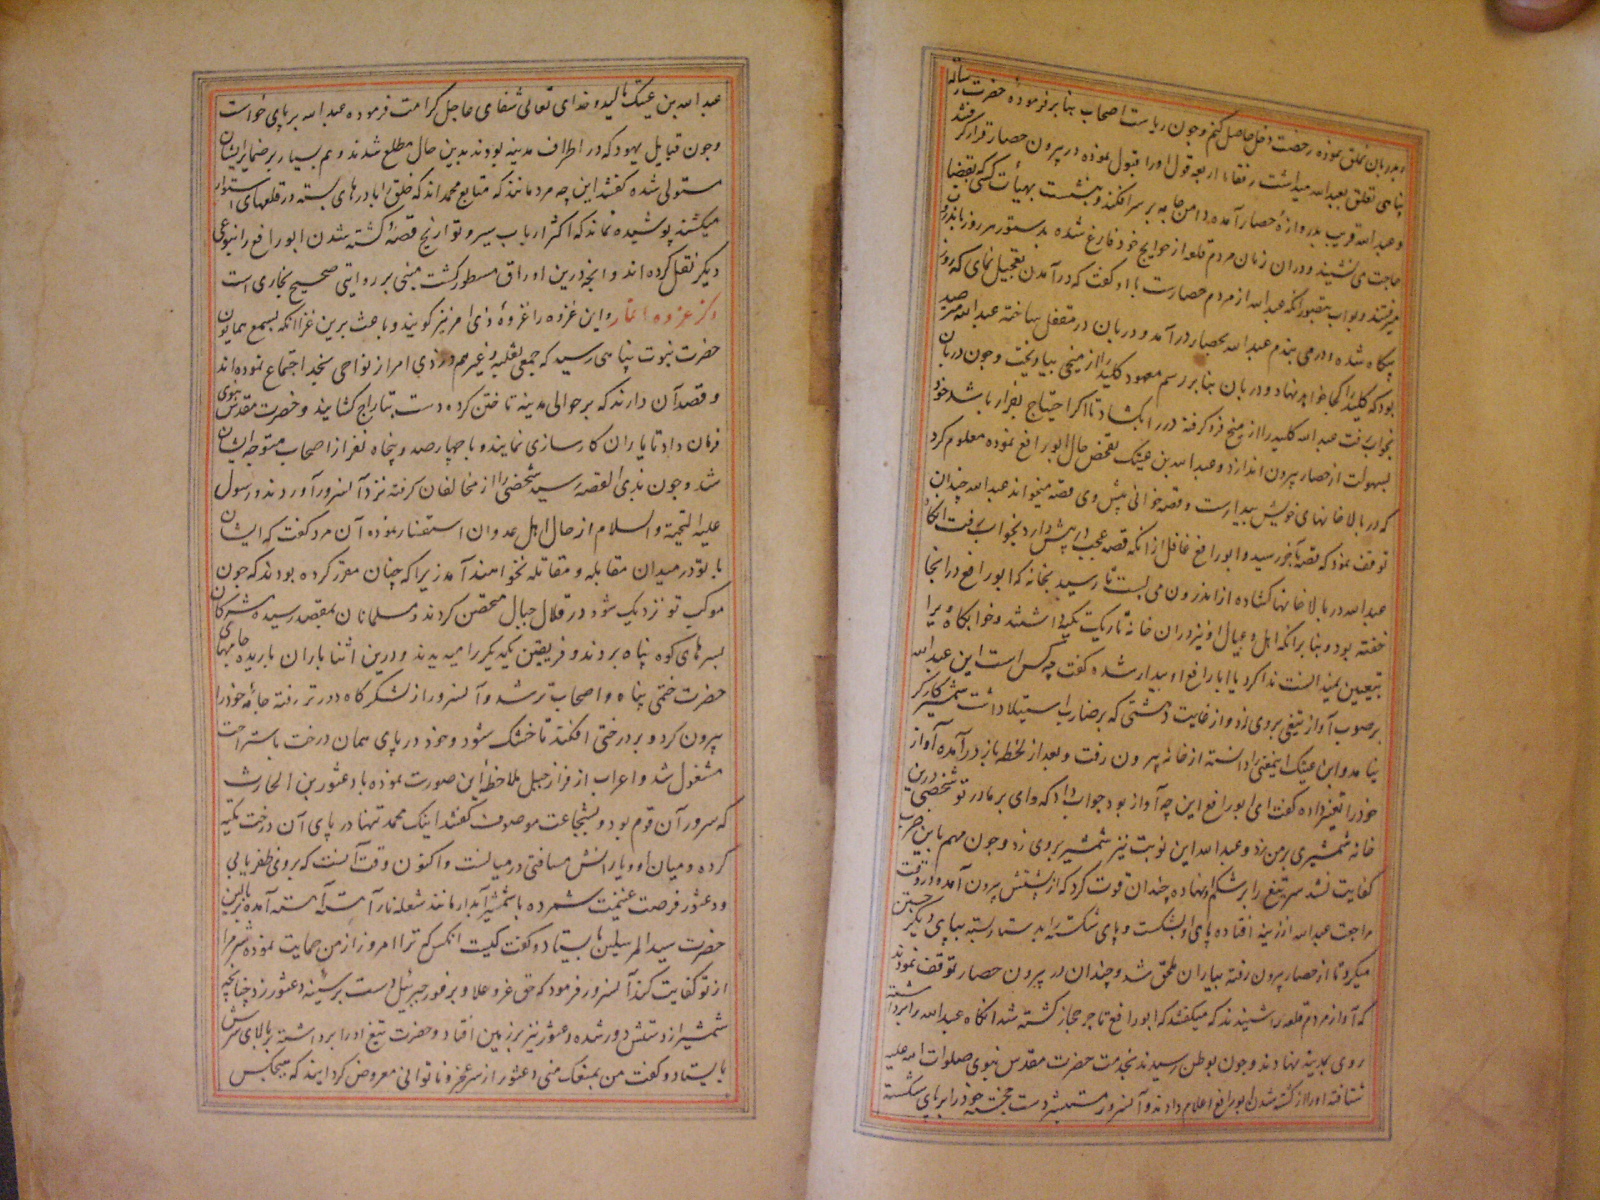 و بدربان تملق نموده رخصت دخل حاصل کنم و چون ریاست اصحاب بنا بر فرموده حضرت رسالت
پناهی تعلق بعبدالله میداشت رفقا اربعه قول او را قبول نموده در بیرون حصار قرار گرفتند
و عبدالله قریب بدروازهٔ حصار آمده دامن جامه بر سر افکند و بنشست بهیأت کسی که بقضا
حاجت می نشیند و دران زمان مردم قلعه از حوایج خود فارغ شده بدستور هر روز باندرون
میرفتند و بواب بتصور آنکه عبدالله از مردم حصارست با او گفت که در آمدن تعجیل نمای که روز
بیگاه شده و در می بندم عبدالله بحصار در آمد و دربان در مقفل ساخته عبدالله مترصد
بود که کلید را کجا خواهد نهاد و دربان بنا بر رسم معهود کلید را از میخی بیاویخت و چون دربان
بخواب رفت عبدالله کلید را از میخ فرو گرفته در را بگشاد تا اگر احتیاج بفرار باشد خود
بسهولت از حصار بیرون اندازد و عبدالله بن عتیک تفحص حال ابو رافع نموده معلوم کرد
که در بالا خانهای خویش بیدارست و قصه خوانی پیش وی قصه میخواند عبدالله چندان
توقف نمود که قصه بآخر رسید و ابو رافع غافل از آنکه قصه عجب در پیش دارد بخواب رفت آنگاه
عبدالله در بالا خانها گشاده از اندرون می بست تا رسید بخانه که ابو رافع در انجا
خفته بود و بنا بر آنکه اهل و عیال او نیز دران خانه تاریک تکیه داشتند و خوابگاه ویرا
بتعیین نمیدانست ندا کرد یا ابا رافع او بیدار شده گفت چه کس است این عبدالله
بر صوب آواز تیغی بروی زد و از غایت دهشتی که بر ضارب استیلا داشت شمشیر کارگر
نیامد و ابن عتیک اینمعنی را دانسته از خانه بیرون رفت و بعد از لحظه باز در آمده آواز
خود را تغییر داده گفت ای ابو رافع این چه آواز بود جواب داد که وای بر مادر تو شخصی درین
خانه شمشیری بر من زد و عبدالله این نوبت نیز شمشیر بروی زد و چون مهم باین ضرب
کفایت نشد سر تیغ را بر شکم او نهاده چندان قوت کرد که از پشتش بیرون آمد و در وقت
مراجعت عبدالله از زینه افتاده پای او بشکست و پای شکسته را بدستار بسته بیای دیگر
میکرد تا از حصار بیرون رفته بیاران ملحق شد و چندان در بیرون حصار توقف نمودند
که آواز مردم قلعه را شنیدند که میگفتند که ابو رافع تاجر حجاز کشته شد آنگاه عبدالله را برداشته
روی بمدینه نهادند و چون بوطن رسیدند بخدمت حضرت مقدس نبوی صلوات الله علیه
شتافته او را از کشته شدن ابو رافع اعلام دادند و آنسرور مستبشر دست خجسته خود را بر پای شکسته
عبدالله بن عتیک مالید و خدای تعالی شفای عاجل کرامت فرموده عبدالله بر پای خواست
و چون قبایل یهود که در اطراف مدینه بودند بدین حال مطلع شدند وهم بسیار بر ضمایر ایشان
مستولی شده گفتند این چه مردمانند که متابع محمد اند که خلق را با درهای بسته در قلعهای استوار
میکشند پوشیده نماند که اکثر ارباب سیر و تواریخ قصهٔ کشته شدن ابو رافع را بنوعی
دیگر نقل کرده اند و آنچه درین اوراق مسطور گشت مبنی بر روایتی صحیح بخاری است
ذکر غزوه انمار و این غزوه را غزوهٔ ذی امر نیز گویند و باعث برین غزا آنکه بسمع همایون
حضرت نبوت پناهی رسید که جمعی ثعلبه و غیرهم در ذی امر از نواحی نجد اجتماع نموده اند
و قصد آن دارند که بر حوالی مدینه تاختن کرده دست بتاراج کشایند و حضرت مقدس نبوی
فرمان داد تا یاران کارسازی نمایند و با چهارصد و پنجاه نفر از اصحاب متوجه ایشان
شد و چون بذی القصه رسید شخصی را از مخالفان گرفته نزد آنسرور آوردند و رسول
علیه التحیة و السلام از حال اهل عدوان استفسار نموده آن مرد گفت که ایشان
با تو در میدان مقابله و مقاتله نخواهند آمد زیرا که چنان مقرر کرده بودند که چون
موکب تو نزدیک شود در قلال جبال متحصن کردند و مسلمانان بمقصد رسیده مشرکان
بسرهای کوه پناه بردند و فریقین یکدیگر را میدیدند و درین اثنا باران باریده جامهای
حضرت ختمی پناه و اصحاب تر شد و آنسرور از لشکرگاه دورتر رفته جامهٔ خود را
بیرون کرد و بر درختی افکند تا خشک شود و خود در پای همان درخت باستراحت
مشغول شد و اعراب از فراز جبل ملاحظهٔ این صورت نموده با دعثور بن الحارث
که سرور آن قوم بود و بشجاعت موصوف گفتند اینک محمد تنها در پای آن درخت تکیه
کرده و میان او و یارانش مسافتی در میانست و اکنون وقت آنست که بروی ظفر یابی
و دعثور فرصت غنیمت شمرده با شمشیر آبدار مانند شعله نار آهسته آهسته آمده ببالین
حضرت سید المرسلین بایستاد و گفت کیست آنکس که ترا امروز از من حمایت نموده شر مرا
از تو کفایت کند آنسرور فرمود که حق عزو علا و بر فور جبرئیل دست بر سینه دعثور زد چنانچه
شمشیر از دستش دور شده و دعثور نیز بر زمین افتاد و حضرت تیغ او را برداشته بر بالای سرش
بایستاد و گفت من یمنعک منی دعثور از سر عجز و ناتوانی معروض گردانید که هیچکس